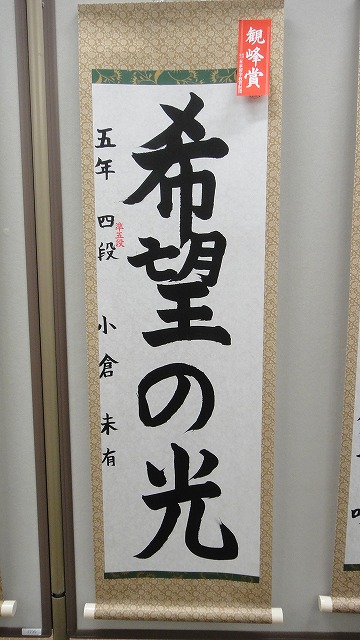 観峰賞
希望の光
五年 四段 小倉 未有
準五段